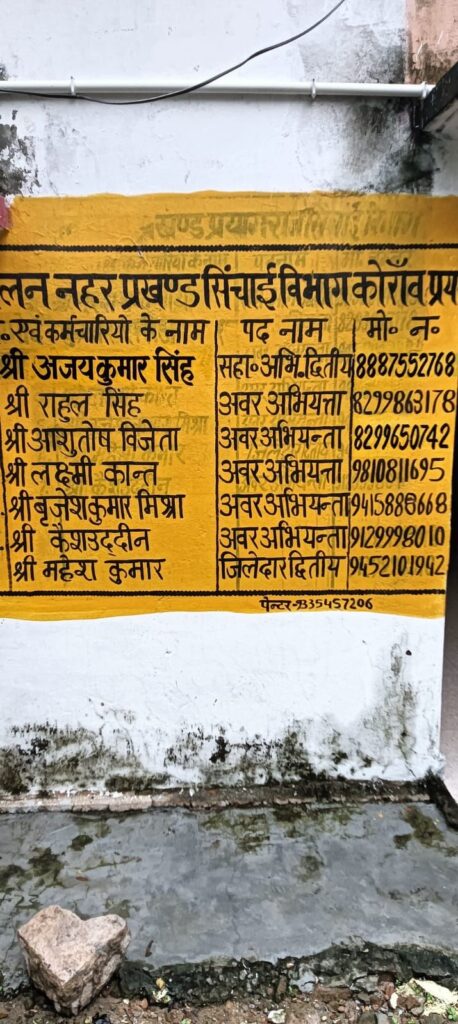 लन नहर प्रखण्ड सिंचाई विभाग कोराँव प्रय
एवं कर्मचारियों के नाम पद नाम मो॰ न॰
श्री अजय कुमार सिंह सहा॰ अभि॰ द्वितीय 8887552768
श्री राहुल सिंह अवर अभियत्ता 8299863178
श्री आशुतोष विजेता अवर अभियन्ता 8299650742
श्री लक्ष्मी कान्त अवर अभियत्ता 9810811695
श्री बृजेश कुमार मिश्रा अवर अभियन्ता
श्री कैशउद्दीन अवर अभियन्ता 9129998010
श्री महेश कुमार जिलेदार द्वितीय 9452101942
पेन्टर-9335457206